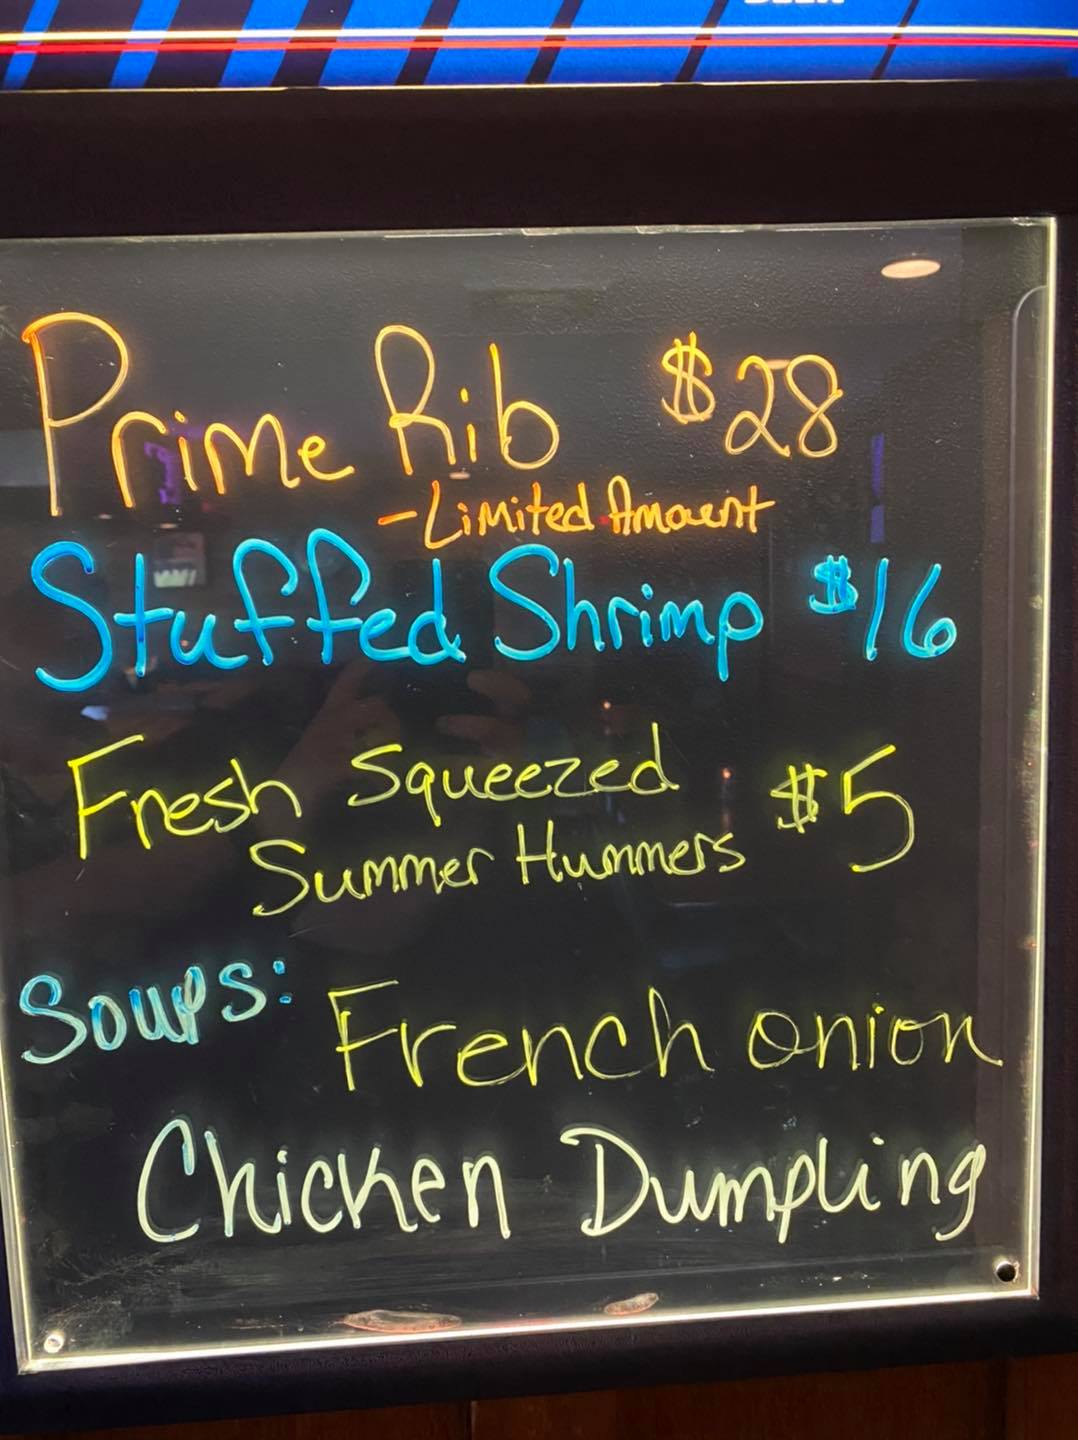 Prime Rib $28
-Limited Amount
Stuffed Shrimp $16
Fresh Squeezed
Summer Hummers $5
Soups: French onion
Chicken Dumpling